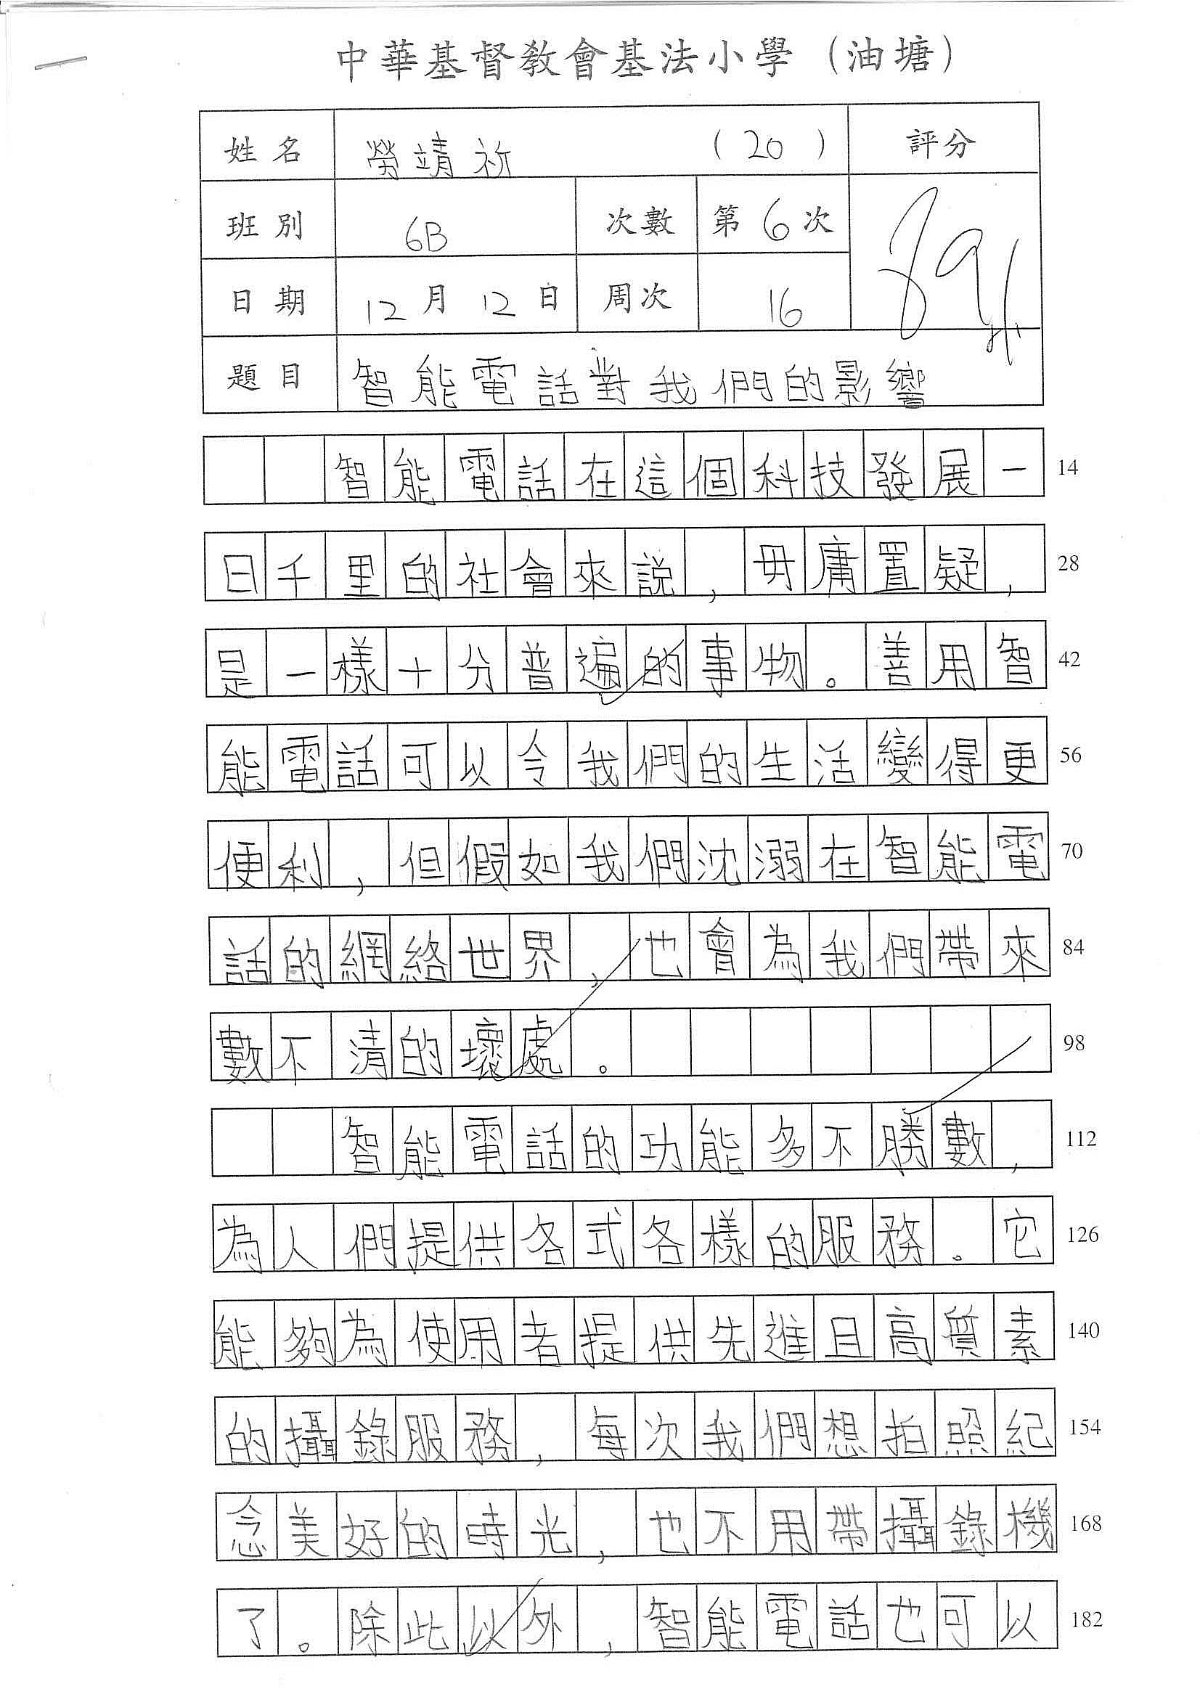 中華基督教會基法小學（油塘）
姓名 勞靖祈 （20） 評分
班別 6B 次數 第6次 89
日期 12月12日 周次 16
題目 智能電話對我們的影響
智能電話在這個科技發展一 14
日千里的社會來說，毋庸置疑， 28
是一樣十分普遍的事物。善用智 42
能電話可以令我們的生活變得更 56
便利，但假如我們沈溺在智能電 70
話的網絡世界，也會為我們帶來 84
數不清的壞處。 98
智能電話的功能多不勝數， 112
為人們提供各式各樣的服務。它 126
能夠為使用者提供先進且高質素 140
的攝錄服務，每次我們想拍照紀 154
念美好的時光，也不用帶攝錄機 168
了。除此以外，智能電話也可以 182